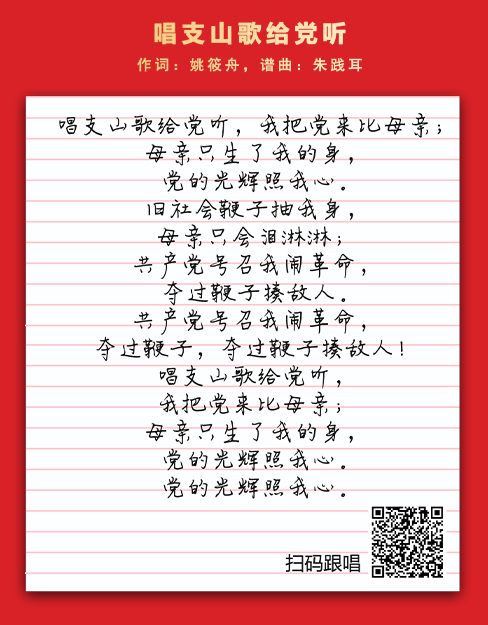 唱支山歌给党听
作词：姚筱舟，谱曲：朱践耳
唱支山歌给党听，我把党来比母亲；
母亲只生了我的身，
党的光辉照我心。
旧社会鞭子抽我身，
母亲只会泪淋淋；
共产党号召我闹革命，
夺过鞭子揍敌人。
共产党号召我闹革命，
夺过鞭子，夺过鞭子揍敌人！
唱支山歌给党听，
我把党来比母亲；
母亲只生了我的身，
党的光辉照我心。
党的光辉照我心。
扫码跟唱